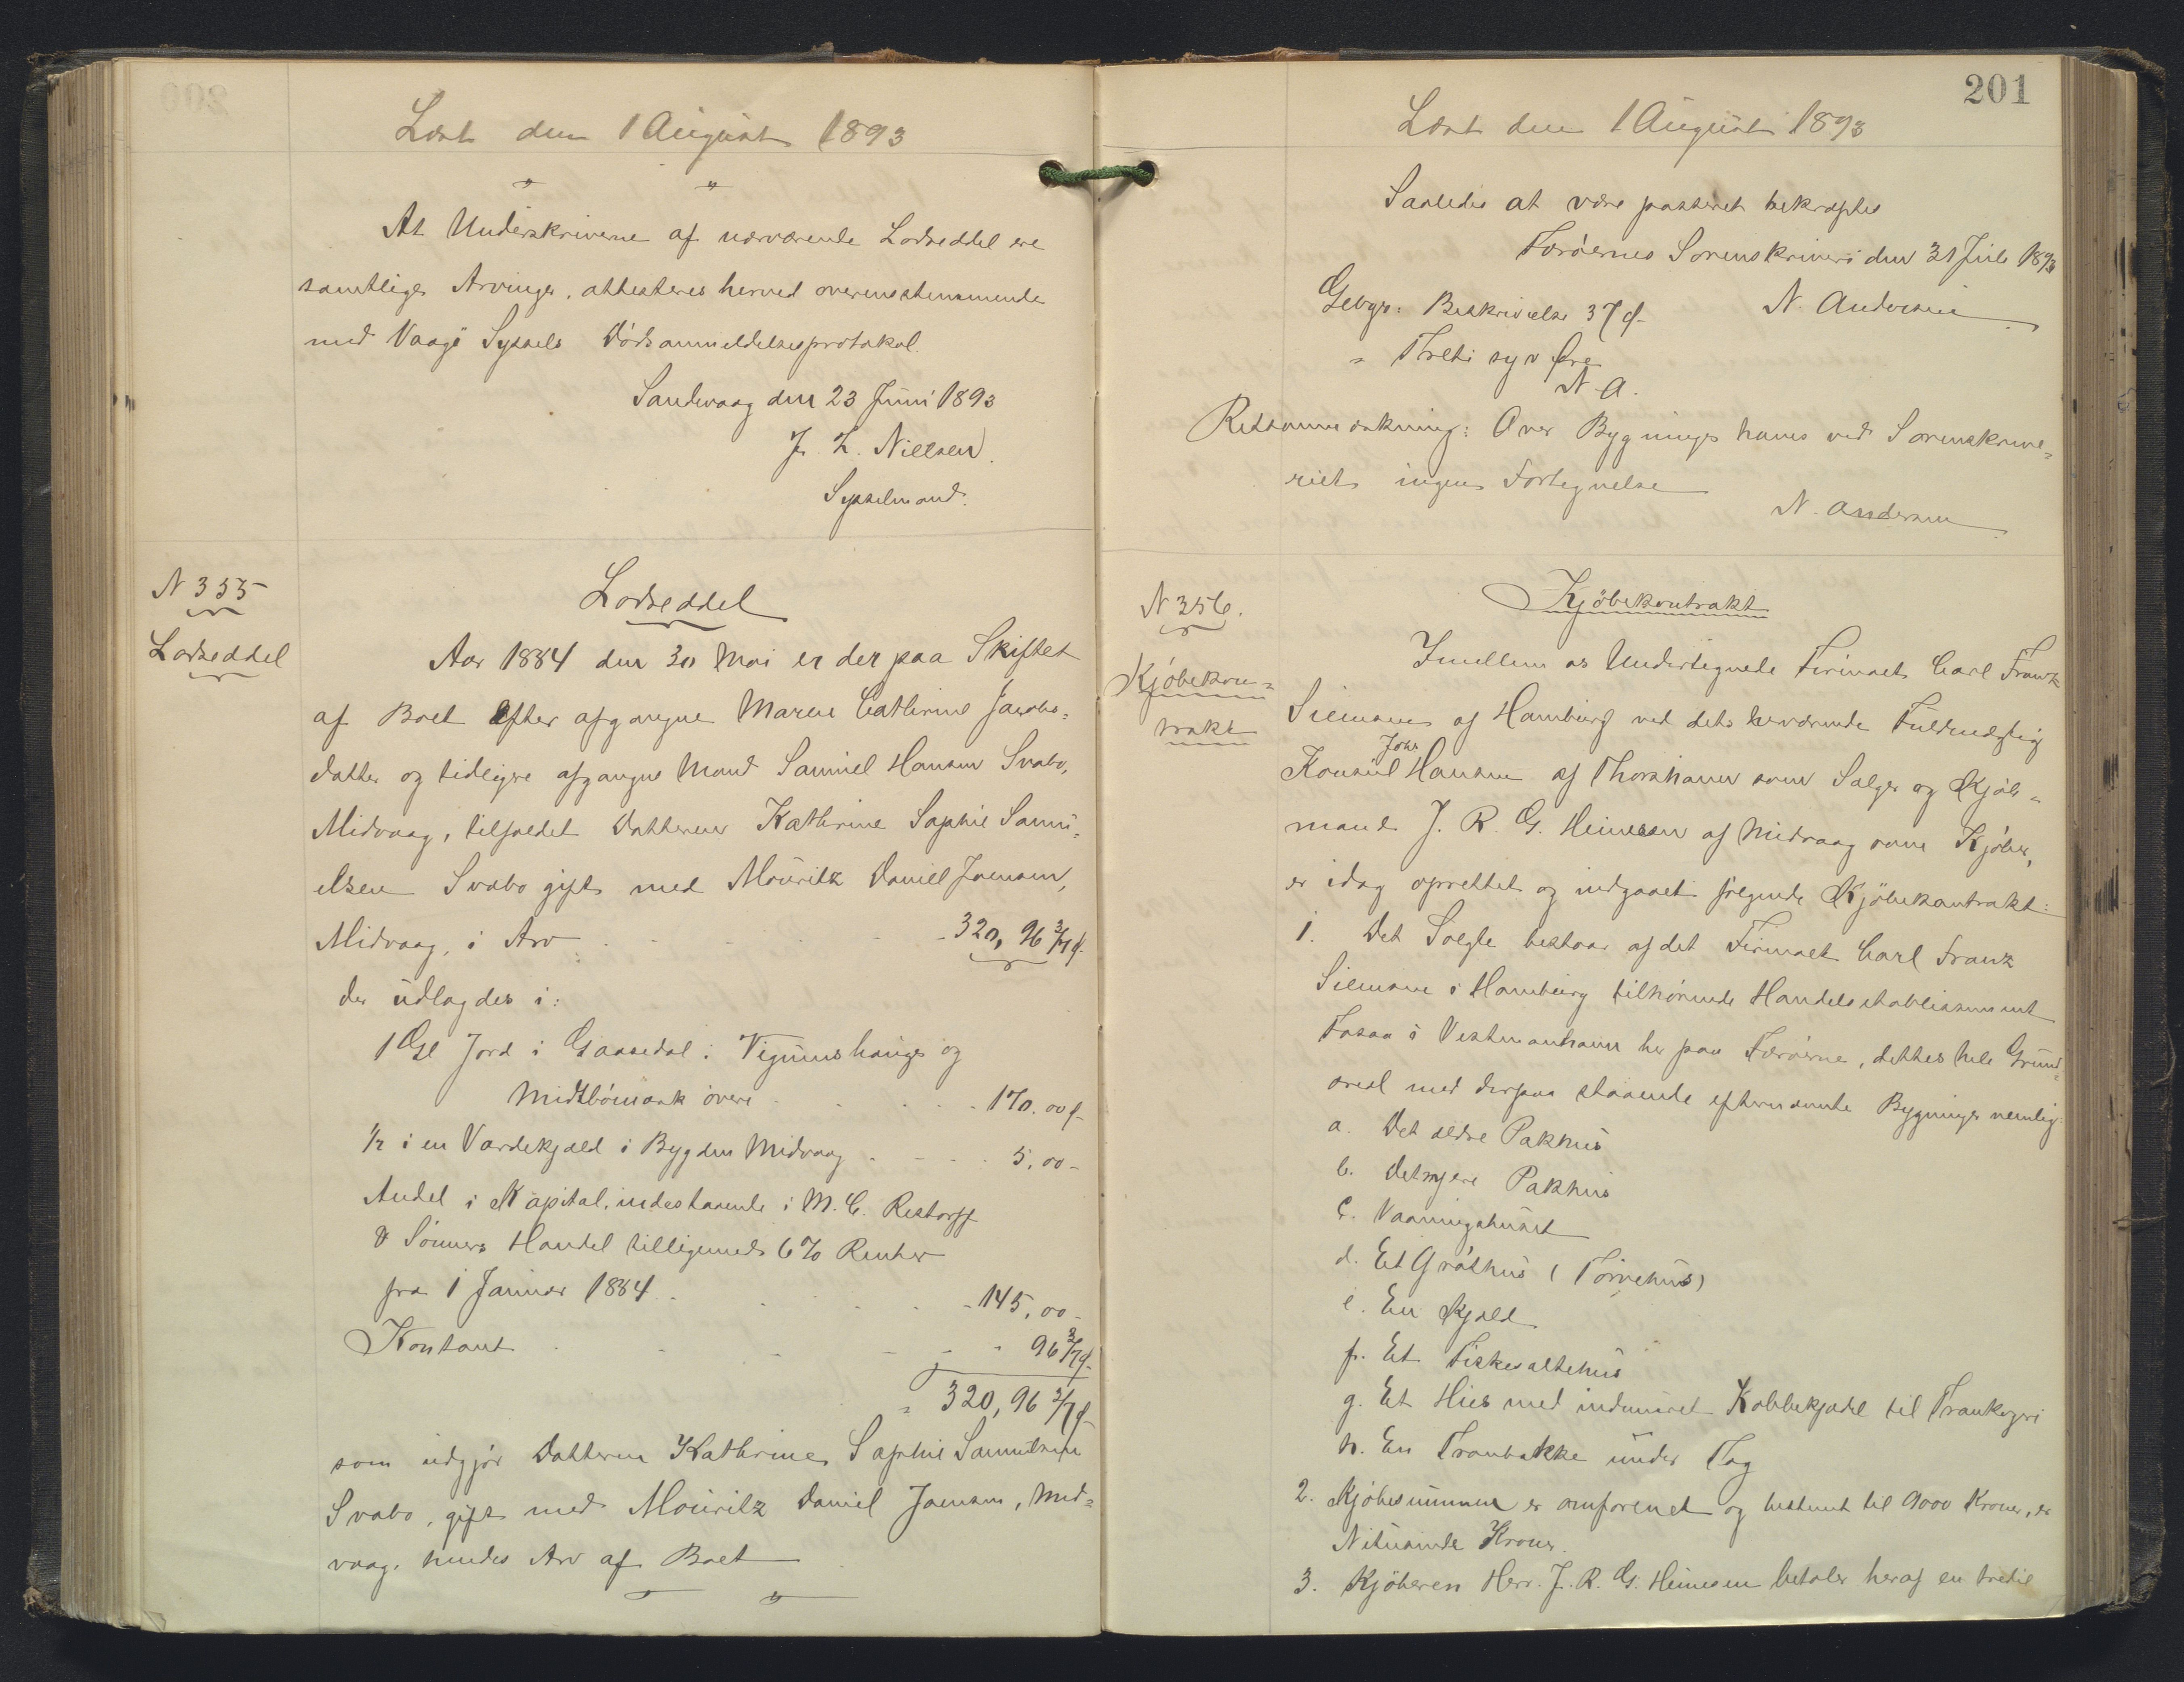 Læst den 1 August 1893
" "
At Underskriverne af nærværende Lodseddel ere
samtlige Arvinger, attesteres herved overensstemmende
med Vaagø Syssels Dødsanmeldelsesprotokol.
Sandevaag den 23 Juni 1893
J. Z. Nielsen.
Sysselmand.
N 355
Lodseddel
Lodseddel
Aar 1884 den 30 Mai er der paa Skiftet
af Boet efter afgangne Maren Cathrine Jacobs=
datter og tidligere afgangne Mand Samuel Hansen Svabo,
Midvaag, tilfaldet Datteren Kathrine Sophie Samu=
elsen Svabo gift med Mouritz Daniel Joensen,
Midvaag, i Arv - - - - 320, 96 3/7 ø.
der udlagdes i:
1 Gl Jord i Gaasedal i Vigums hauge og
Midtbømark øvere - - - - 170. 00 ø
1/2 i en Vardekjæld i Bygden Midvaag - - - - 5, 00 -
Andel i Kapital, indestaaende i M. C. Restorff
& Sønners Handel tilligemed 6 % Renter
fra 1 Januar 1884 - - - - 145, 00 -
Kontant - - - - 96 3/7 ø.
= 320, 96 3/7 ø
som udgjør Datteren Kathrine Sophie Samuelsen
Svabo, gift med Mouritz Daniel Joensen, Mid=
vaag, hendes Arv af Boet
" "
201
Læst den 1 August 1893
Saaledes at være passeret bekræftes
Færøernes Sorenskriveri den 31 Juli 1893
Gebyr: Beskrivelse 37 ø N. Andersen
= Treti syv Øre
N. A.
Retsanmærkning: Over Bygninger haves ved Sorenskrive=
riet ingen Fortegnelse
N. Andersen
N 356.
Kjøbekon=
trakt
Kjøbekontrakt
Imellem os Undertegnede Firmaet Carl Franz
Siemsen af Hamburg ved dets herværende Fuldmægtig
Konsul Johs Hansen af Thorshavn som Sælger og Kjøb=
mand J. R. G. Heinesen af Midvaag som Kjøber,
er idag oprettet og indgaaet følgende Kjøbekontrakt:
1. Det Solgte bestaar af det Firmaet Carl Franz
Siemsen i Hamburg tilhørende Handelsetablissement
Fosaa i Vestmanhavn her paa Færøerne, dettes hele Grund=
areal med derpaa staaende efternævnte Bygninger nemlig:
a. Det ældre Pakhus
b. Det nyere Pakhus
c. Vaaningshuset
d. Et Gróthus (Tørvehus)
e. En Kjæld
f. Et Fiskesaltehus
g. Et Hus med indmuret Kobbekjedel til Trankogeri
h. En Tranbakke under Tag
2. Kjøbesummen er omforenet og bestemt til 9000 Kroner, er
Nitusinde Kroner.
3. Kjøberen Herr. J. R. G. Heinesen betaler heraf en tredie